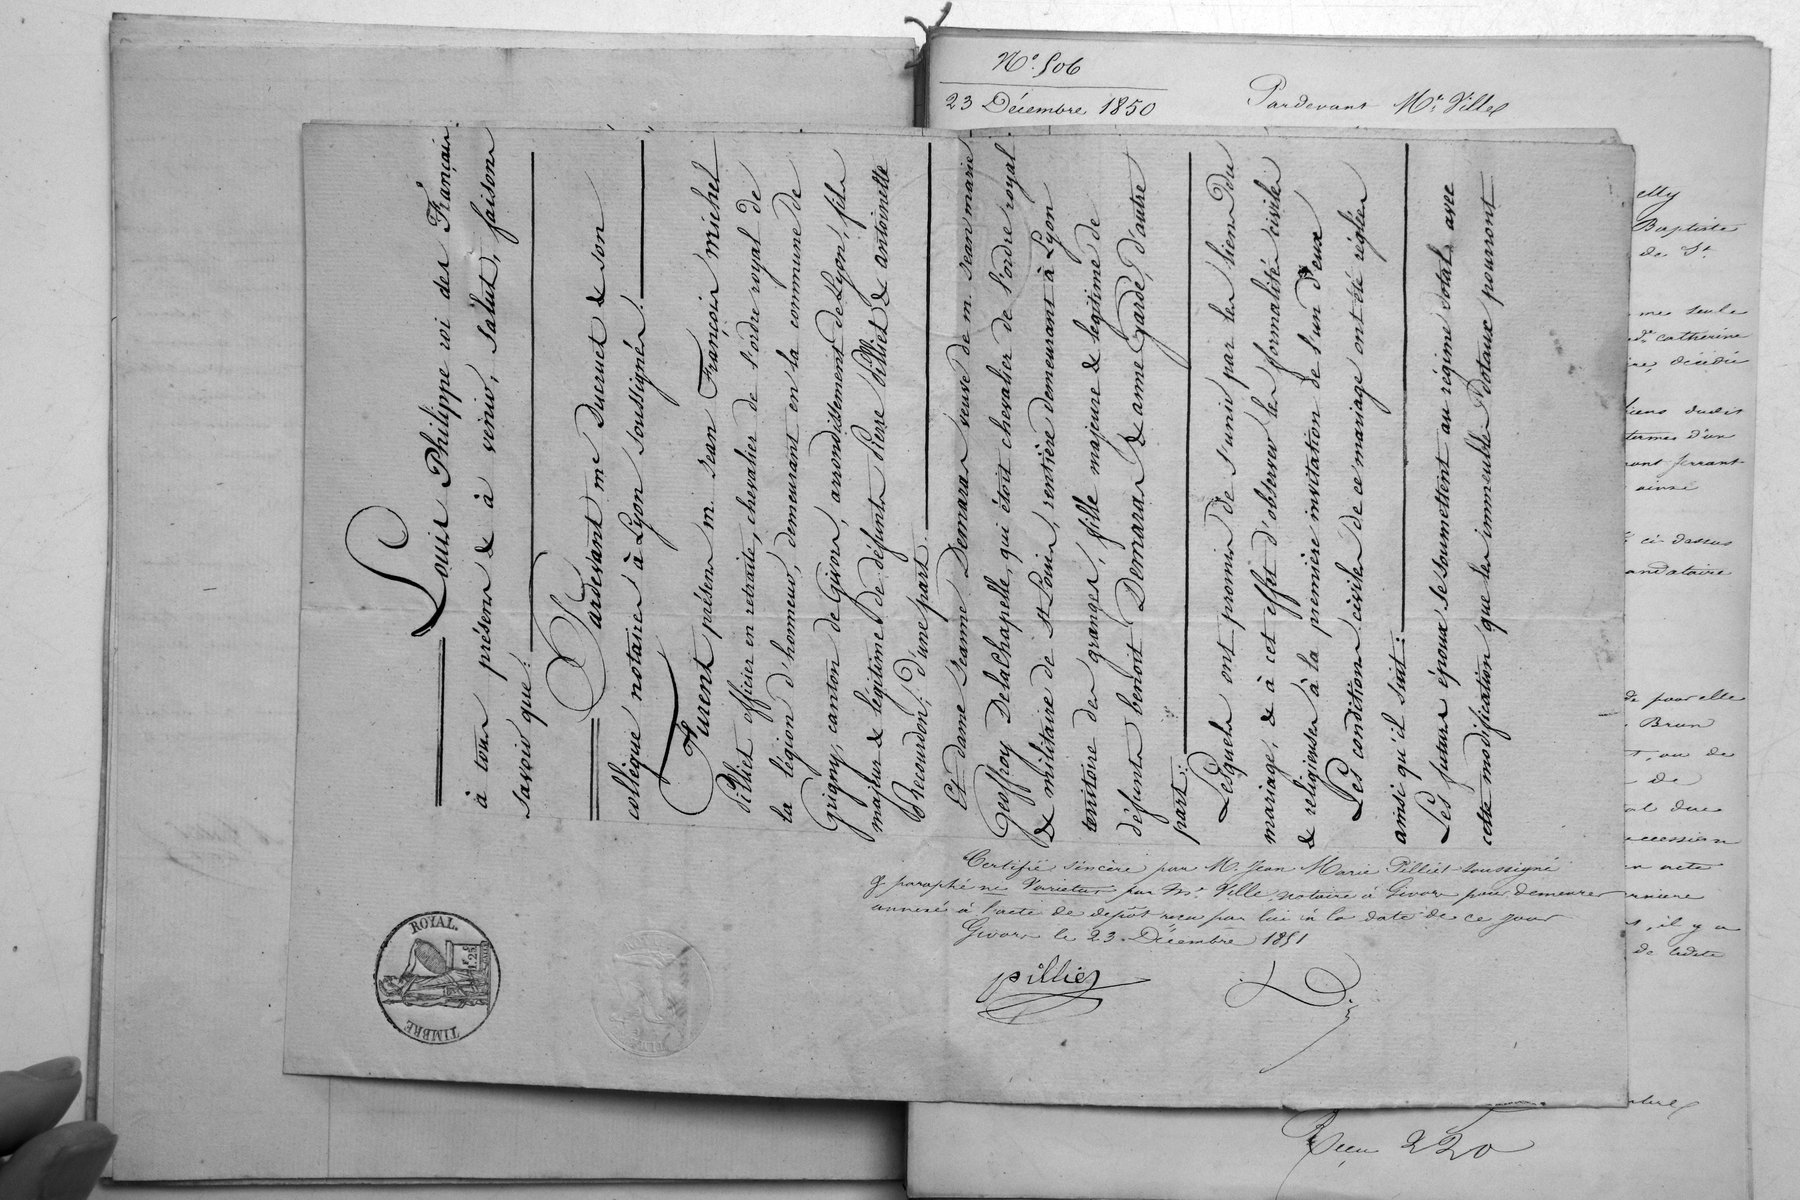 N.° 506
23 Décembre 1850
Pardevant Me. Ville
Louis Philippe roi des Français
à tous présens & à venir, salut, faisons
savoir que:
Pardevant me Durruet & son
collègue notaires à Lyon soussignés.
Furent présens m. Jean François michel
Pilliet officier en retraite, chevalier de l'ordre royal de
la légion d'honneur, demeurant en la commune de
Grigny, canton de Givors, arrondissement de Lyon, fils
majeur & légitime de défunts Pierre Pilliet & antoinette
Recourdon, d'une part.
Et dame Jeanne Demaras veuve de m. Jean marie
Geoffroy Delachapelle, qui étoit chevalier de l'ordre royal
& militaire de St. Louis, rentière demeurant à Lyon
territoire des granges, fille majeure & légitime de
défunts benoit Demaras & anne Garde, d'autre
part.
Lesquels ont promis de s'unir par les liens du
mariage, & à cet effet d'observer les formalités civiles
& religieuses à la première invitation de l'un d'eux
Les conditions civiles de ce mariage ont été réglées
ainsi qu'il suit:
Les futurs époux se soumettent au régime dotal avec
cette modification que les immeubles dotaux pourront
Certifié sincère par M. Jean Marie Pilliet soussigné
& paraphé ne Varietur par Me. Ville notaire à Givors pour demeurer
annexé à l'acte de dépôt reçu par lui à la date de ce jour
Givors le 23 Décembre 1851
Pilliet
ROYAL.
F. C.
1.25
TIMBRE
elly
Baptiste
de St.
mes seule
catherine
décédé
liens dudit
termes d'un
ainsi
ci-dessus
mandataire
de pour elle
Brun
, ou de
de
due
succession
acte
, il y a
de ladite
Reçu 220